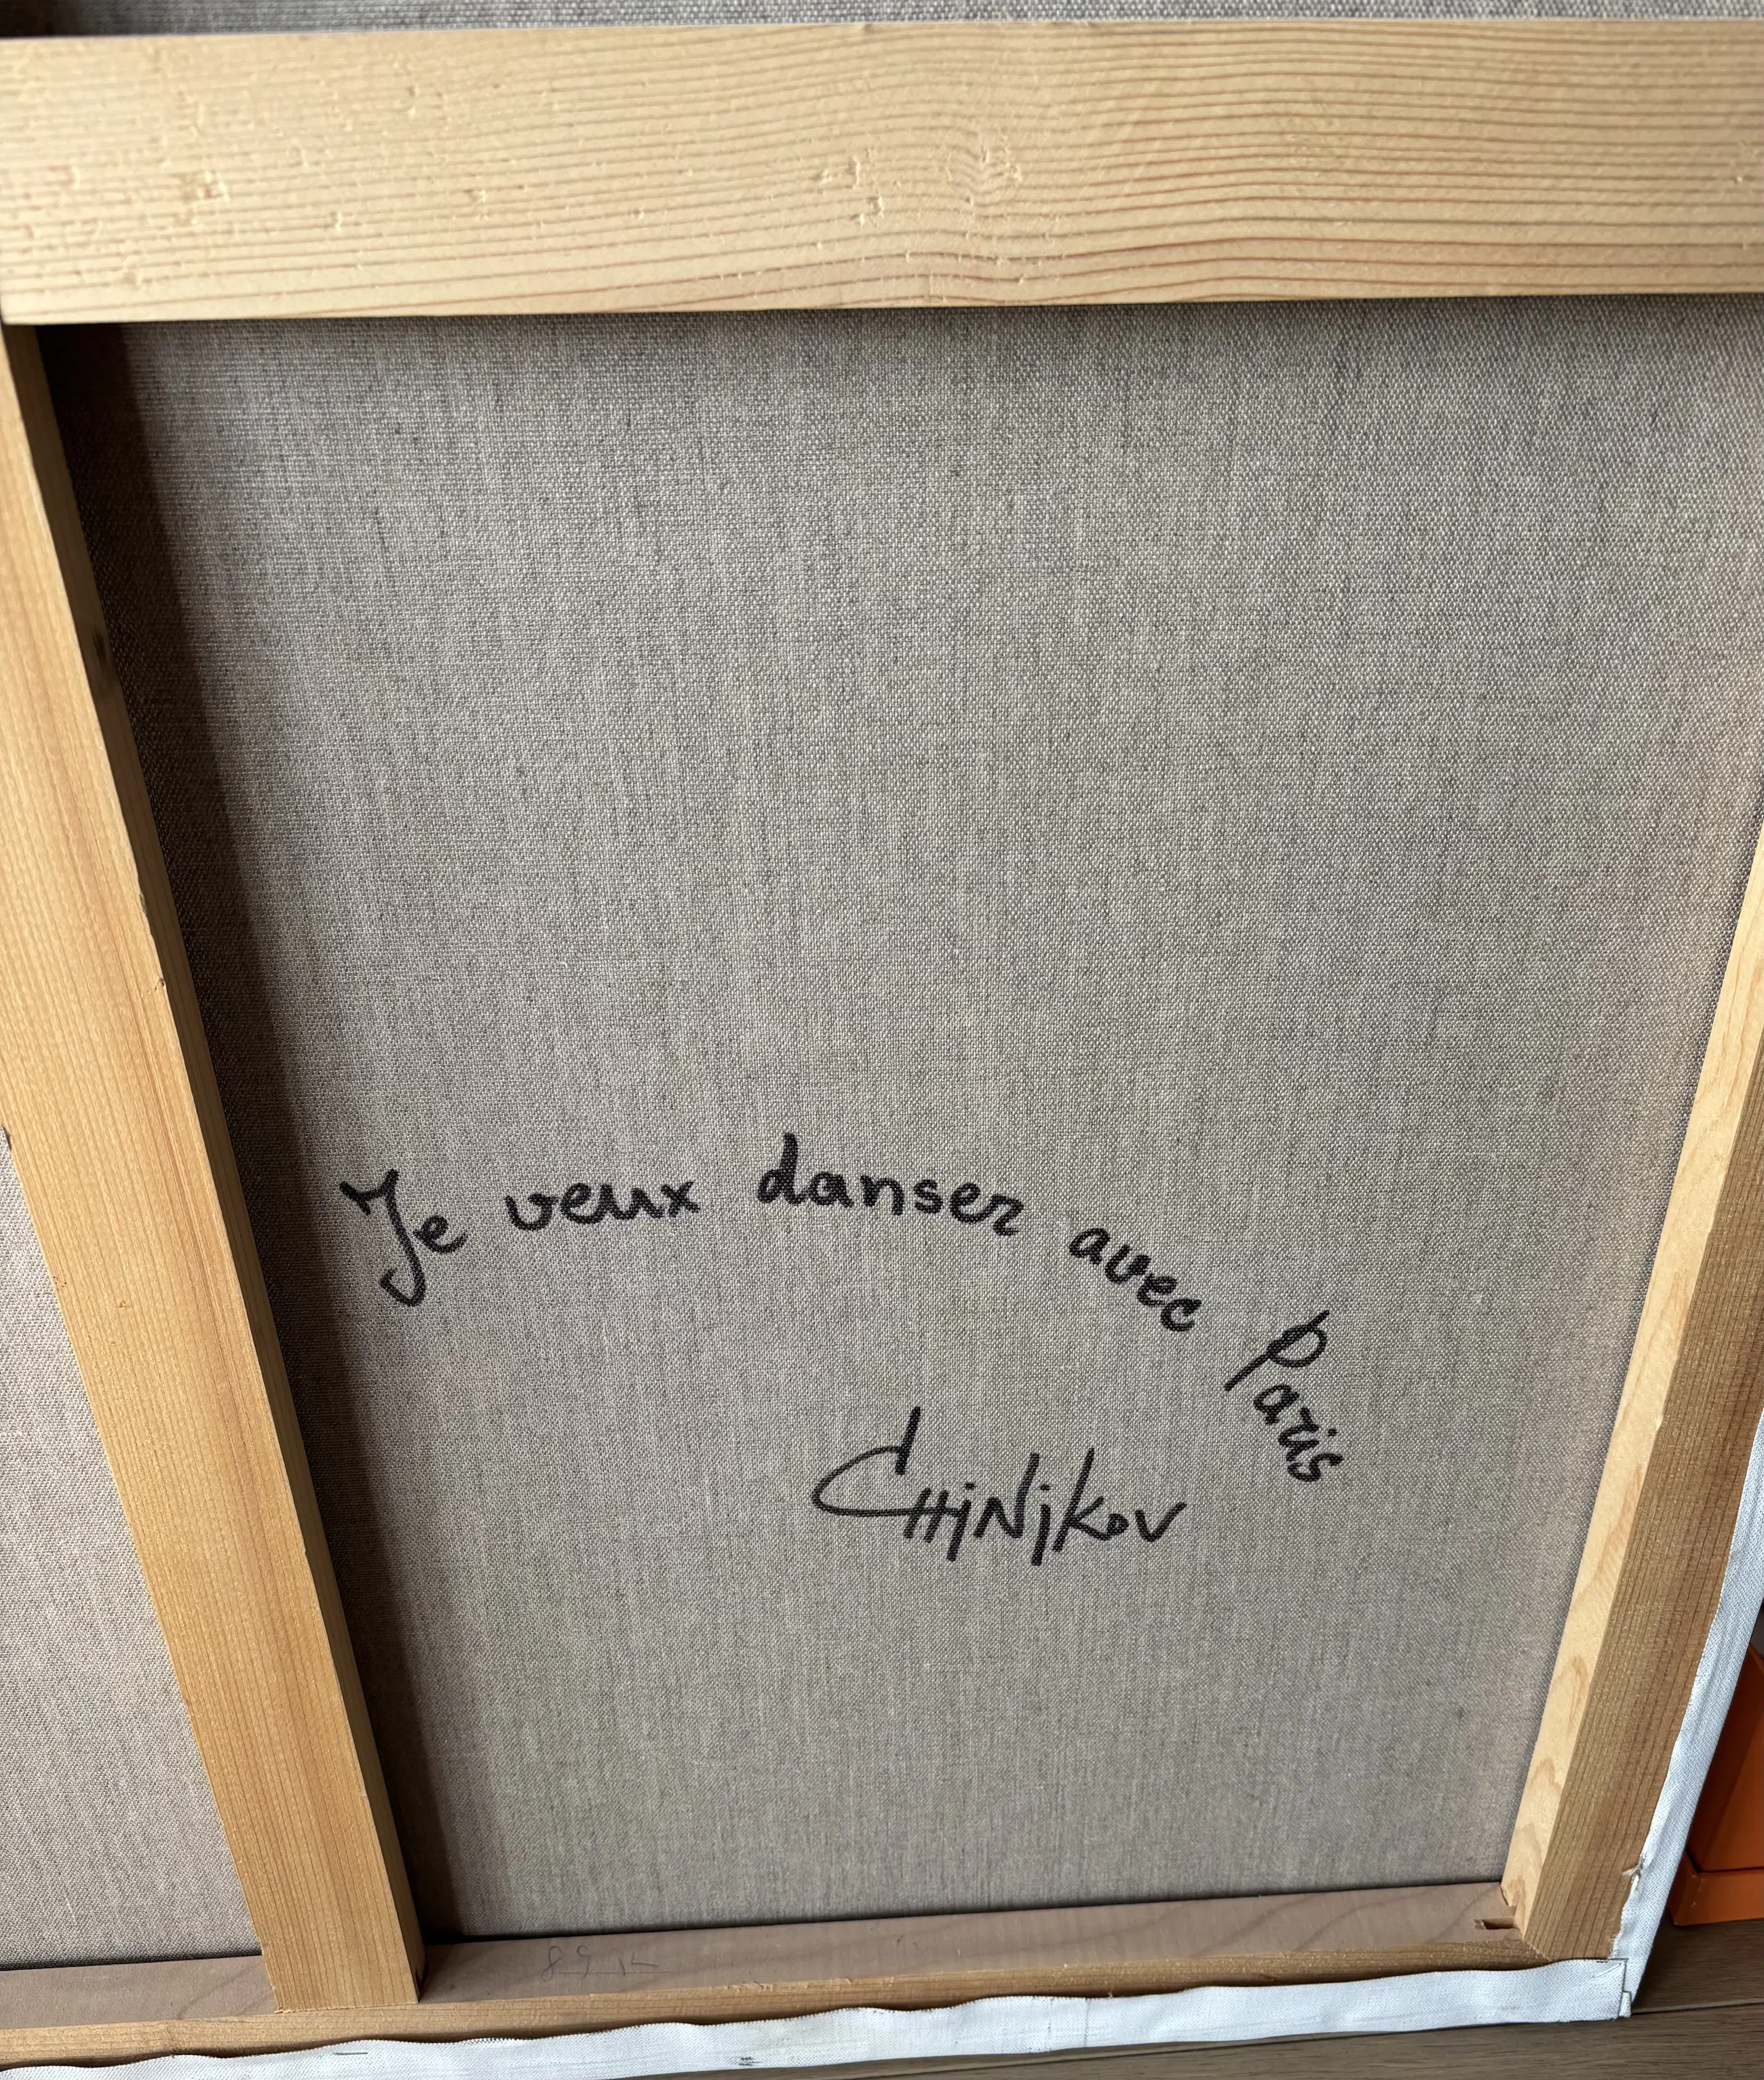 Je veux danser avec Paris
CHiNiKOV